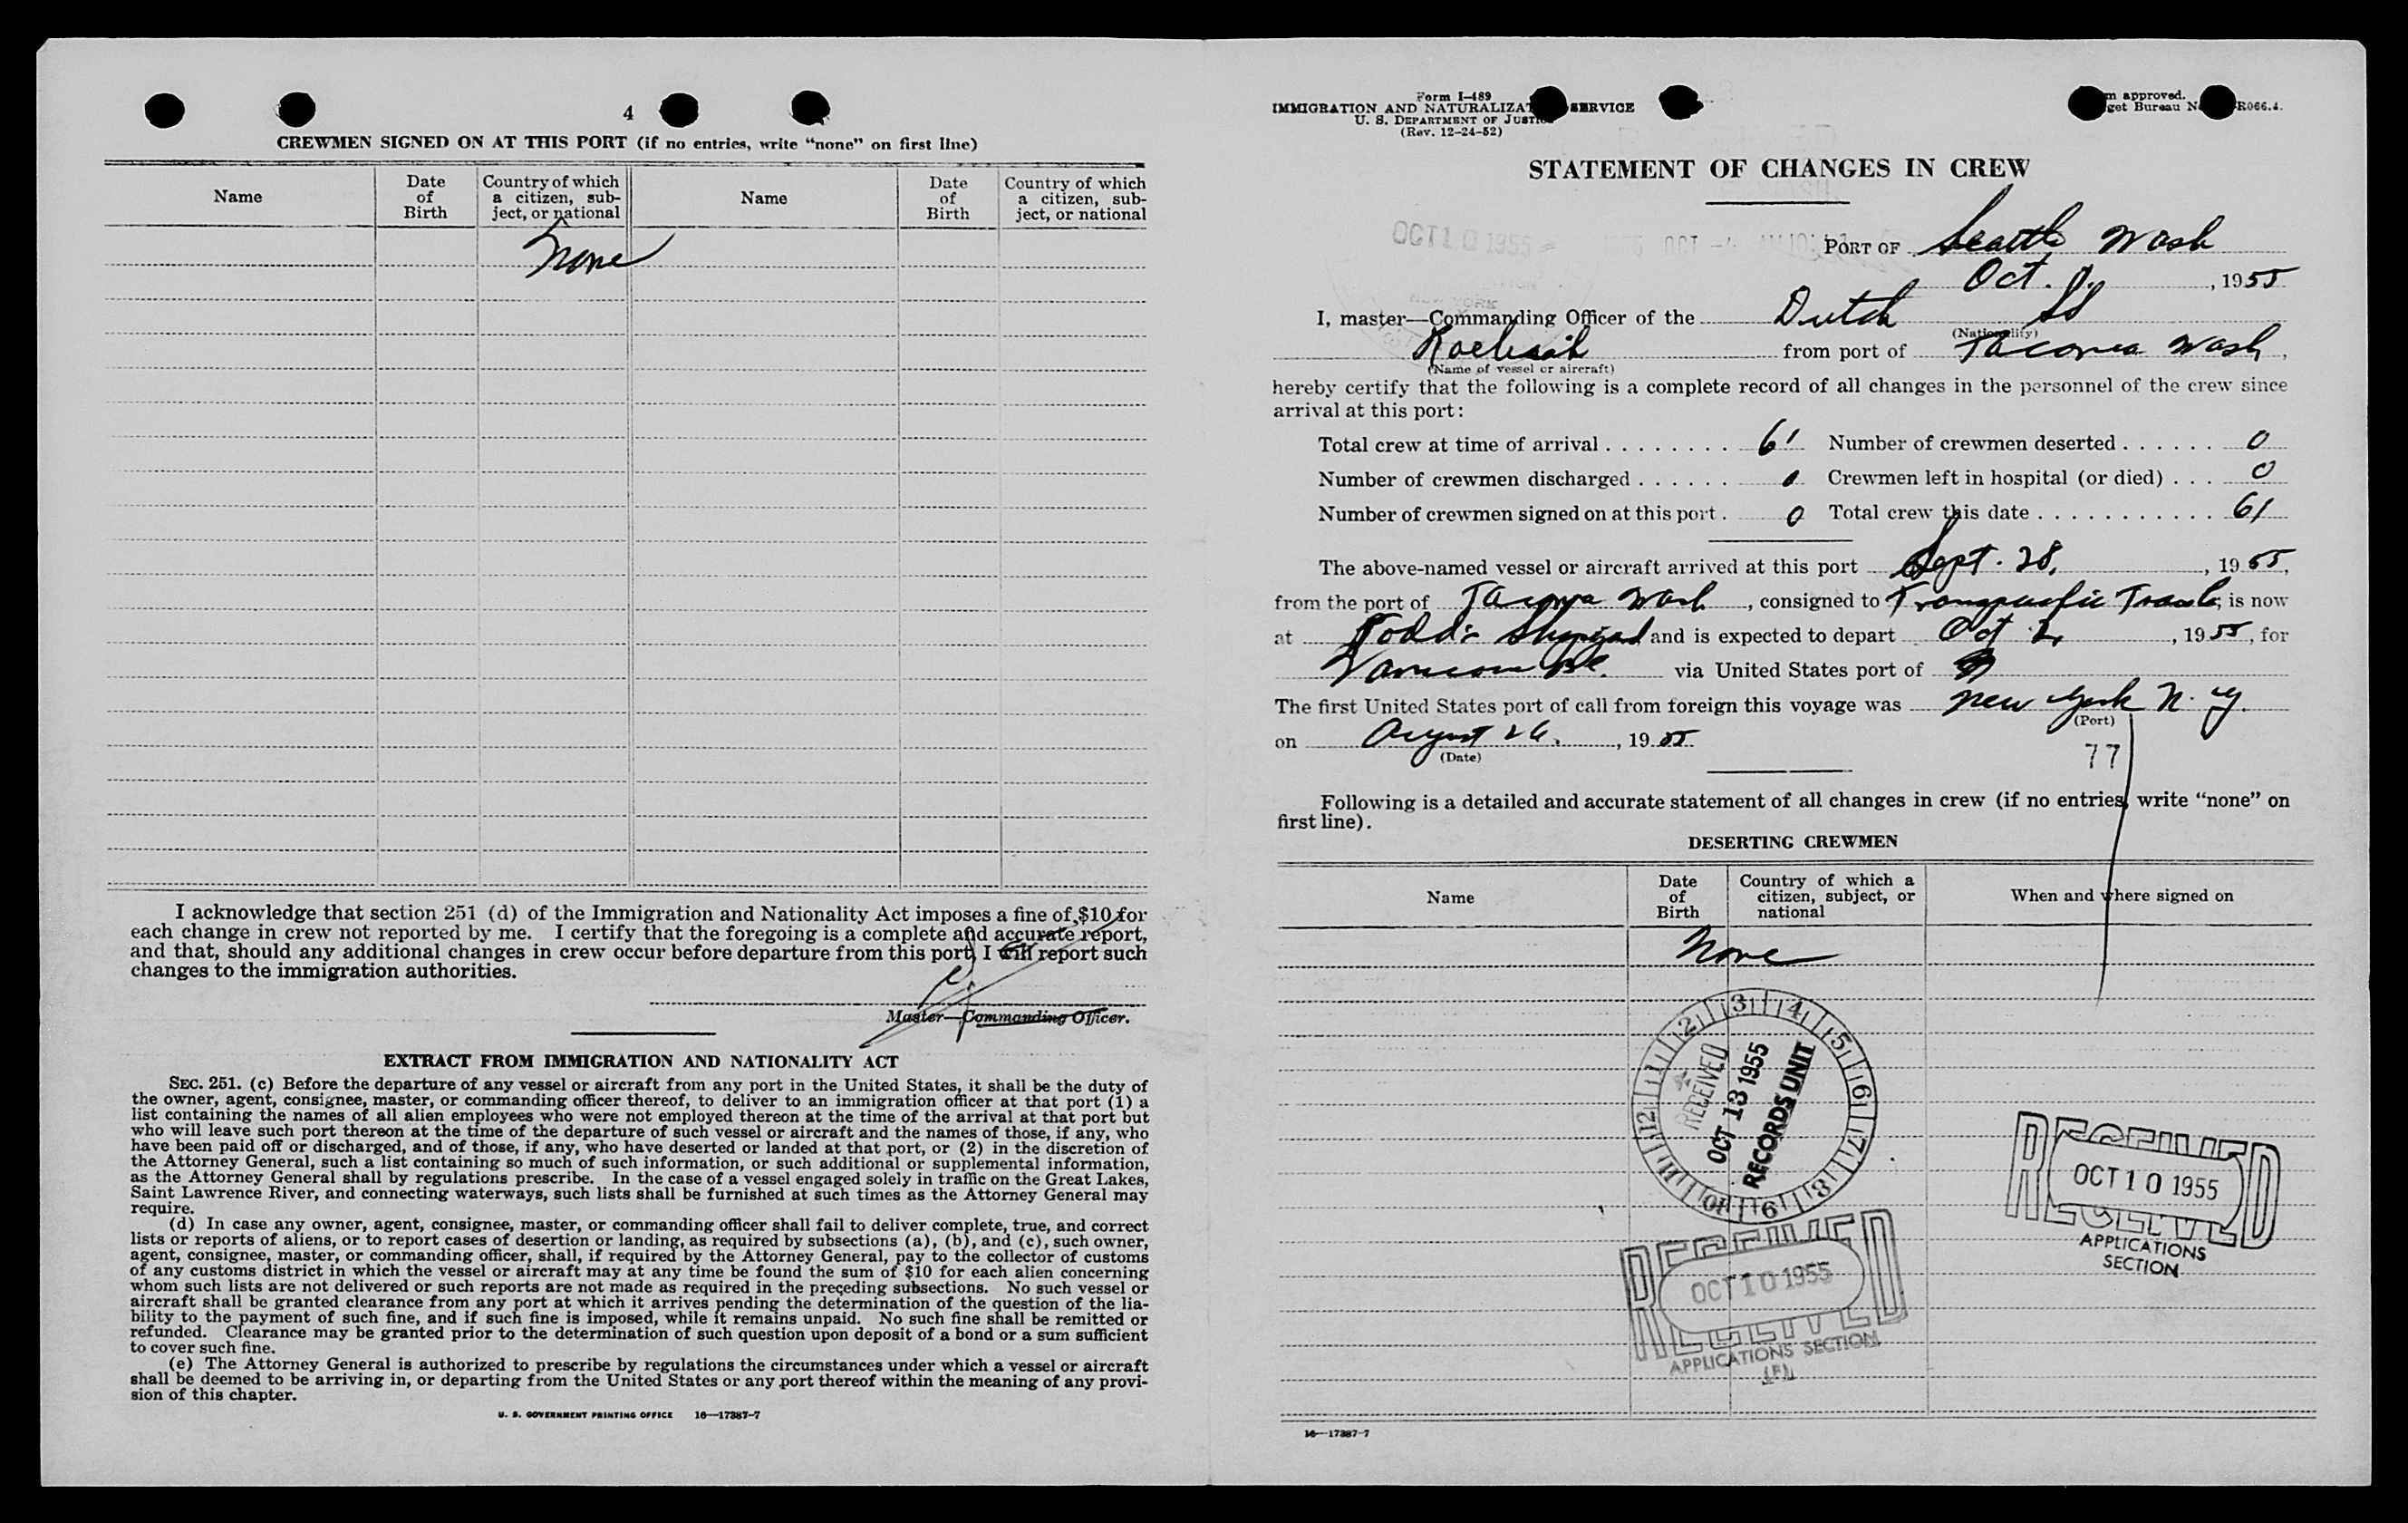 4
CREWMEN SIGNED ON AT THIS PORT (if no entries, write "none" on first line)
Name Date of Birth Country of which a citizen, subject, or national Name Date of Birth Country of which a citizen, subject, or national
None
I acknowledge that section 251 (d) of the Immigration and Nationality Act imposes a fine of $10 for
each change in crew not reported by me. I certify that the foregoing is a complete and accurate report,
and that, should any additional changes in crew occur before departure from this port, I will report such
changes to the immigration authorities.
Master—Commanding Officer.
EXTRACT FROM IMMIGRATION AND NATIONALITY ACT
SEC. 251. (c) Before the departure of any vessel or aircraft from any port in the United States, it shall be the duty of
the owner, agent, consignee, master, or commanding officer thereof, to deliver to an immigration officer at that port (1) a
list containing the names of all alien employees who were not employed thereon at the time of the arrival at that port but
who will leave such port thereon at the time of the departure of such vessel or aircraft and the names of those, if any, who
have been paid off or discharged, and of those, if any, who have deserted or landed at that port, or (2) in the discretion of
the Attorney General, such a list containing so much of such information, or such additional or supplemental information,
as the Attorney General shall by regulations prescribe. In the case of a vessel engaged solely in traffic on the Great Lakes,
Saint Lawrence River, and connecting waterways, such lists shall be furnished at such times as the Attorney General may
require.
(d) In case any owner, agent, consignee, master, or commanding officer shall fail to deliver complete, true, and correct
lists or reports of aliens, or to report cases of desertion or landing, as required by subsections (a), (b), and (c), such owner,
agent, consignee, master, or commanding officer, shall, if required by the Attorney General, pay to the collector of customs
of any customs district in which the vessel or aircraft may at any time be found the sum of $10 for each alien concerning
whom such lists are not delivered or such reports are not made as required in the preceding subsections. No such vessel or
aircraft shall be granted clearance from any port at which it arrives pending the determination of the question of the lia-
bility to the payment of such fine, and if such fine is imposed, while it remains unpaid. No such fine shall be remitted or
refunded. Clearance may be granted prior to the determination of such question upon deposit of a bond or a sum sufficient
to cover such fine.
(e) The Attorney General is authorized to prescribe by regulations the circumstances under which a vessel or aircraft
shall be deemed to be arriving in, or departing from the United States or any port thereof within the meaning of any provi-
sion of this chapter.
U. S. GOVERNMENT PRINTING OFFICE 16—17387-7
Form I-489
IMMIGRATION AND NATURALIZAT SERVICE
U. S. DEPARTMENT OF JUSTI
(Rev. 12-24-52)
m approved.
get Bureau N R066.4.
STATEMENT OF CHANGES IN CREW
OCT 10 1955
PORT OF Seattle Wash
Oct. , 1955
I, master—Commanding Officer of the Dutch SS
(Nationality)
from port of Tacoma Wash,
(Name of vessel or aircraft)
hereby certify that the following is a complete record of all changes in the personnel of the crew since
arrival at this port:
Total crew at time of arrival . . . . . . . . 61 Number of crewmen deserted . . . . . . 0
Number of crewmen discharged . . . . . . 0 Crewmen left in hospital (or died) . . . 0
Number of crewmen signed on at this port . 0 Total crew this date . . . . . . . . . . . . 61
The above-named vessel or aircraft arrived at this port Sept. 28, , 1955,
from the port of Tacoma Wash , consigned to Transpacific Transp Co, is now
at Todd's Shipyard and is expected to depart Oct 2, , 1955, for
Vancouver BC. via United States port of
The first United States port of call from foreign this voyage was New York N. Y.
(Port)
on August 26. , 1955
(Date)
77
Following is a detailed and accurate statement of all changes in crew (if no entries, write "none" on
first line).
DESERTING CREWMEN
Name Date of Birth Country of which a citizen, subject, or national When and where signed on
None
1 2 3 4 5 6 7 8 9 10 11 12
RECEIVED
OCT 13 1955
RECORDS UNIT
RECEIVED
OCT 10 1955
APPLICATIONS
SECTION
RECEIVED
OCT 10 1955
APPLICATIONS SECTION
16—17387-7